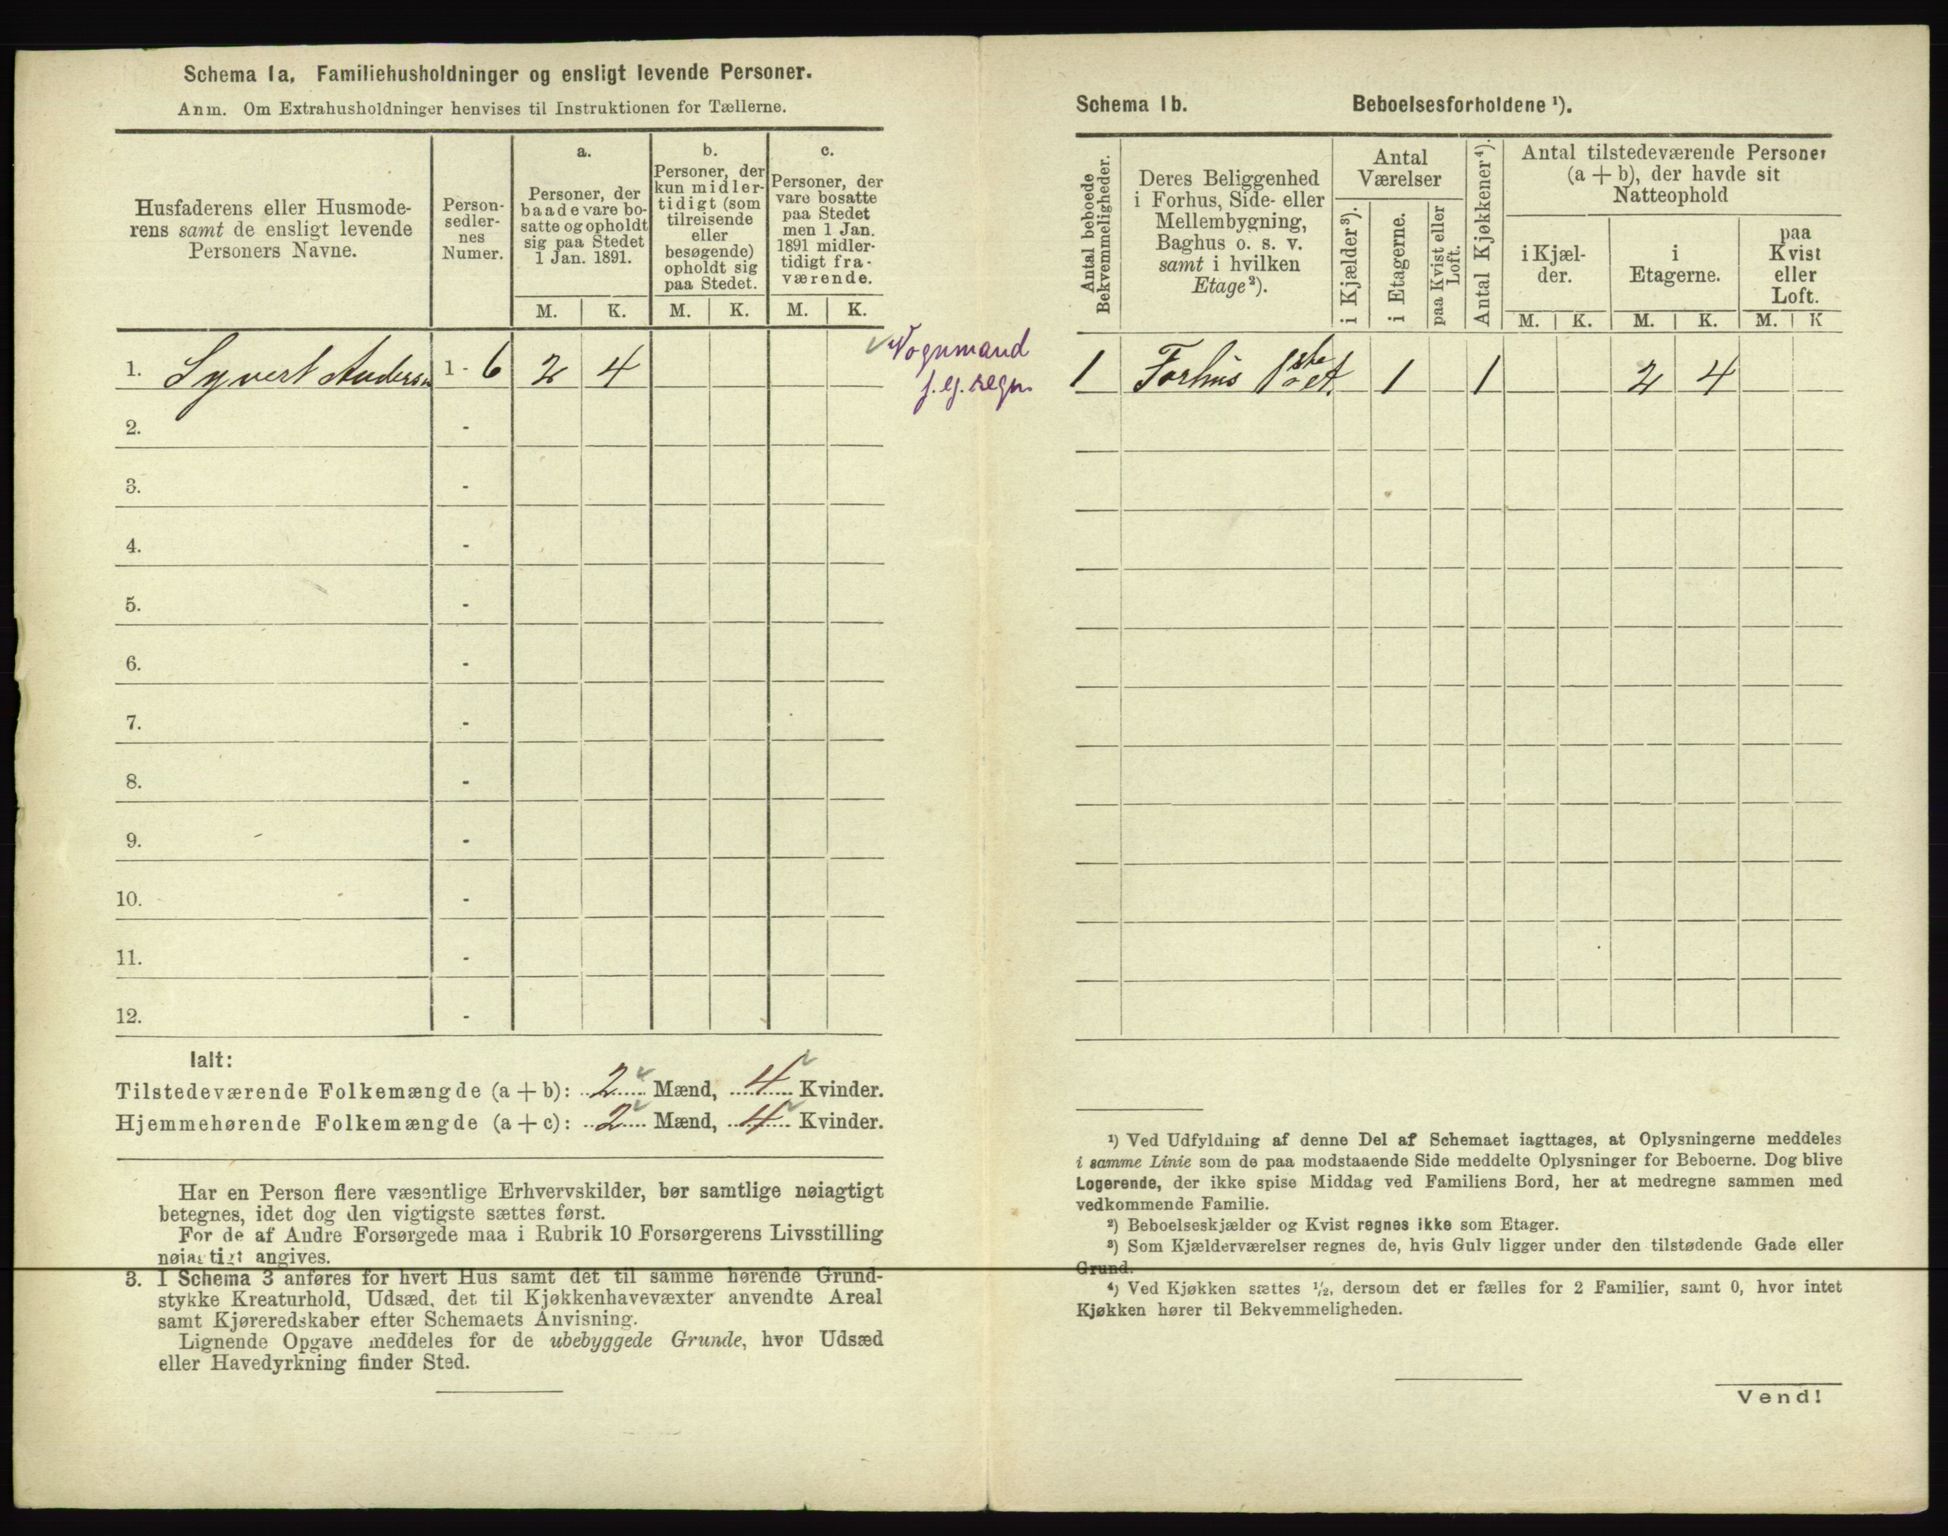 Schema 1a. Familiehusholdninger og ensligt levende Personer.
Anm. Om Extrahusholdninger henvises til Instruktionen for Tællerne.
Husfaderens eller Husmode-
rens samt de ensligt levende
Personers Navne.
Person-
sedler-
nes
Numer.
a.
Personer, der
baade vare bo-
satte og opholdt
sig paa Stedet
1 Jan. 1891.
M. K.
b.
Personer, der
kun midler-
tidigt (som
tilreisende
eller
besøgende)
opholdt sig
paa Stedet.
M. K.
c.
Personer, der
vare bosatte
paa Stedet
men 1 Jan.
1891 midler-
tidigt fra-
værende.
M. K.
1. Syvert Anderse 1 - 6 2 4
Vognmand
f. eg. regn.
2. -
3. -
4. -
5. -
6. -
7. -
8. -
9. -
10. -
11. -
12. -
Ialt:
Tilstedeværende Folkemængde (a + b): 2 Mænd, 4 Kvinder.
Hjemmehørende Folkemængde (a + c): 2 Mænd, 4 Kvinder.
Har en Person flere væsentlige Erhvervskilder, bør samtlige nøiagtigt
betegnes, idet dog den vigtigste sættes først.
For de af Andre Forsørgede maa i Rubrik 10 Forsørgerens Livsstilling
nøiagtigt angives.
3. I Schema 3 anføres for hvert Hus samt det til samme hørende Grund-
stykke Kreaturhold, Udsæd, det til Kjøkkenhavevæxter anvendte Areal
samt Kjøreredskaber efter Schemaets Anvisning.
Lignende Opgave meddeles for de ubebyggede Grunde, hvor Udsæd
eller Havedyrkning finder Sted.
Schema 1b. Beboelsesforholdene ¹).
Antal beboede
Bekvemmeligheder.
Deres Beliggenhed
i Forhus, Side- eller
Mellembygning,
Baghus o. s. v.
samt i hvilken
Etage²).
Antal
Værelser
i Kjælder³).
i Etagerne.
paa Kvist eller
Loft.
Antal Kjøkkener⁴).
Antal tilstedeværende Personer
(a + b), der havde sit
Natteophold
i Kjæl-
der.
i
Etagerne.
paa
Kvist
eller
Loft.
M. K. M. K. M. K
1 Forhus 1ste Et. 1 1 2 4
¹) Ved Udfyldning af denne Del af Schemaet iagttages, at Oplysningerne meddeles
i samme Linie som de paa modstaaende Side meddelte Oplysninger for Beboerne. Dog blive
Logerende, der ikke spise Middag ved Familiens Bord, her at medregne sammen med
vedkommende Familie.
²) Beboelseskjælder og Kvist regnes ikke som Etager.
³) Som Kjælderværelser regnes de, hvis Gulv ligger under den tilstødende Gade eller
Grund.
⁴) Ved Kjøkken sættes ½, dersom det er fælles for 2 Familier, samt 0, hvor intet
Kjøkken hører til Bekvemmeligheden.
Vend!